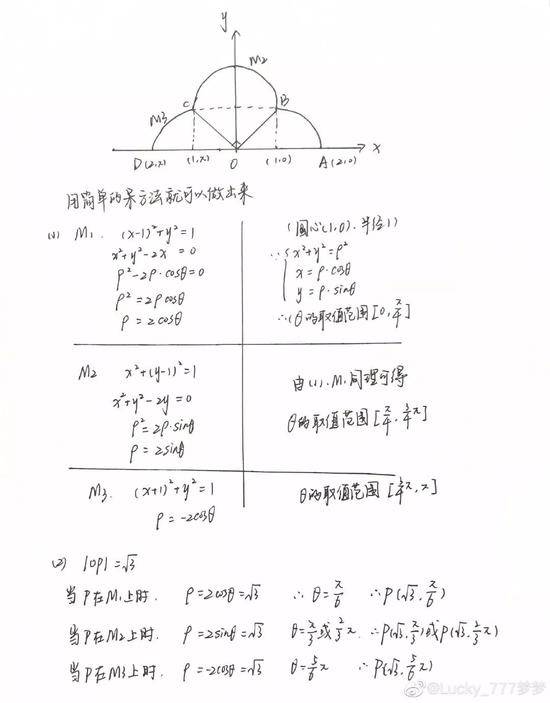 y
M2
C
B
M3
D(2,π)
(1,π)
O
(1,0)
A(2,0)
x
用简单的办方法就可以做出来
(1) M1. (x-1)²+y²=1
x²+y²-2x=0
ρ²-2ρ·cosθ=0
ρ²=2ρcosθ
ρ=2cosθ
(圆心(1,0).半径1)
∵ { x²+y²=ρ²
x=ρ·cosθ
y=ρ·sinθ
∴(θ的取值范围[0,π/4]
M2 x²+(y-1)²=1
x²+y²-2y=0
ρ²=2ρ·sinθ
ρ=2sinθ
由(1).M1同理可得
θ的取值范围[π/4,3/4π]
M3. (x+1)²+y²=1
ρ=-2cosθ
θ的取值范围[3/4π,π]
(2) |OP|=√3
当P在M1上时. ρ=2cosθ=√3 ∴θ=π/6 ∴P(√3,π/6)
当P在M2上时. ρ=2sinθ=√3 θ=π/3或2/3π ∴P(√3,π/3)或P(√3,2/3π)
当P在M3上时. ρ=-2cosθ=√3 θ=5/6π ∴P(√3,5/6π)
@Lucky_777梦梦